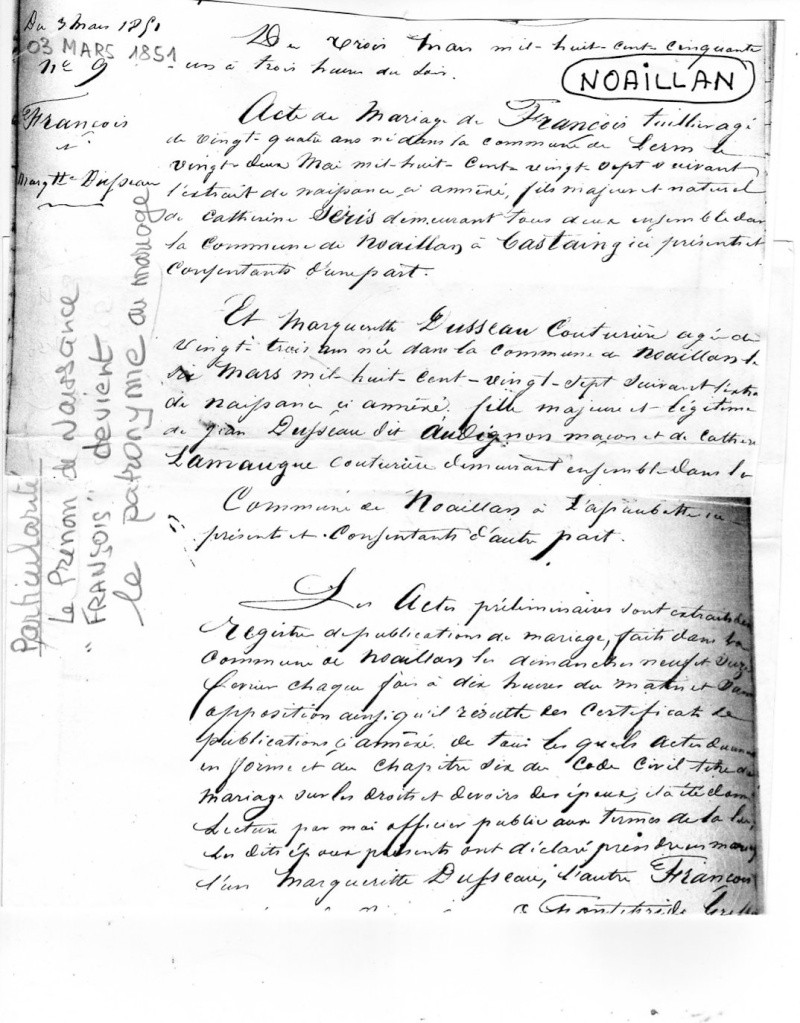 Du 3 Mars 1851
03 MARS 1851
n° 9
François
et
Margtte Dusseau
NOAILLAN
Du trois Mars mil-huit-cent-cinquante
-un à trois heures du soir.
Acte de Mariage de François tuillier agé
de vingt-quatre ans né dans la commune de Lerm le
vingt-deux Mai mil-huit-cent-vingt-sept suivant
l'extrait de naissance ci annéxé, fils majeur et naturel
de Catherine Séris demeurant tous deux ensemble dan
la Commune de Noaillan à Castaing ici présents et
Consentants d'une part.
Et Margueritte Dusseau Couturière agée de
vingt-trois ans née dans la Commune de Noaillan le
six Mars mil-huit-cent-vingt-sept suivant l'extra
de naissance ci annéxé, fille majeure et légitime
de Jean Dusseau dit Audignon maçon et de Cathe
Lamauque couturière demeurant ensemble dans la
Commune de Noaillan à
présents et Consentants d'autre part.
Les Actes préliminaires sont extraits des
Régistre de publications de mariage, faits dans la
commune de Noaillan les dimanches neuf et
fevrier chaque fois à dix heures du matin et
opposition ainsi qu'il résulte des Certificats de
publications ci annéxé. de tous les quels Actes
en forme et du Chapitre six du Code Civil titre du
Mariage sur les droits et devoirs des époux, il a été donné
Lecture par moi officier public aux termes de la loi,
Les dits époux présents ont déclaré prendre en mariage
l'un Marguerritte Dusseau, l'autre François
Particularité
Le Prénom de Naissance
"FRANÇOIS" devient
le patronyme au mariage